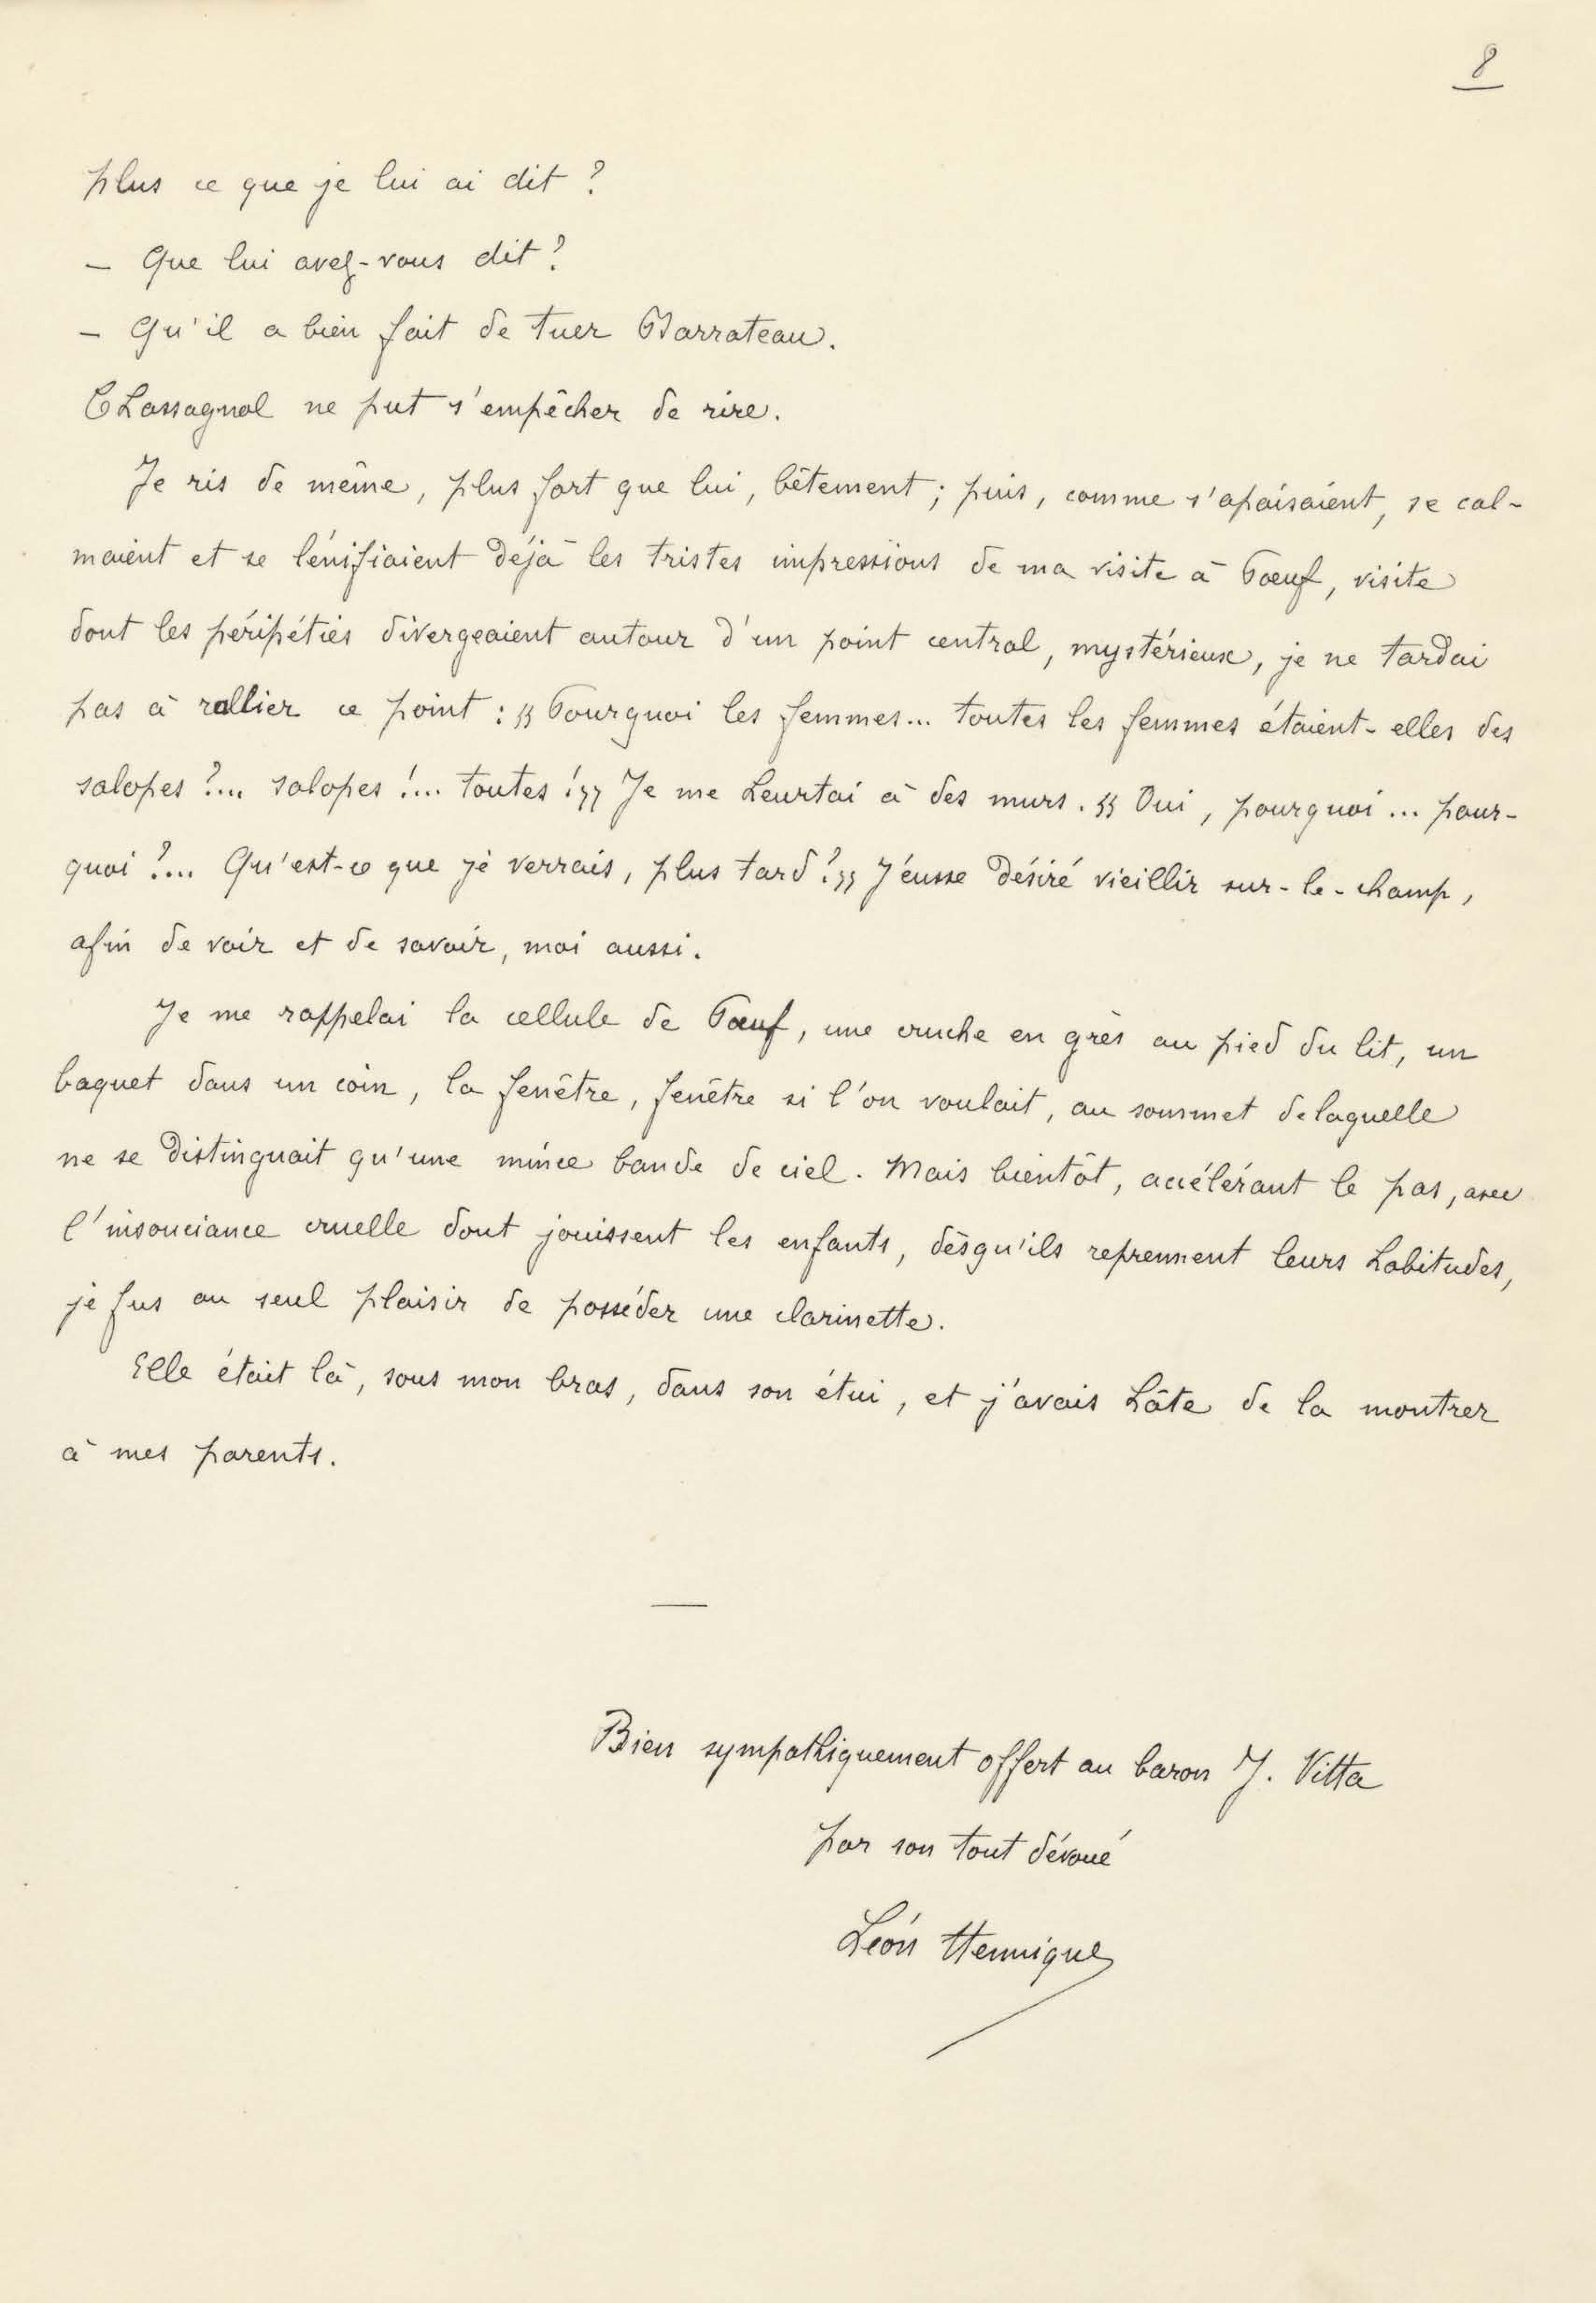 8
plus ce que je lui ai dit ?
— Que lui avez-vous dit ?
— Qu'il a bien fait de tuer Barrateau.
Chassagnol ne put s'empêcher de rire.
Je ris de même, plus fort que lui, bêtement ; puis, comme s'apaisaient, se cal-
maient et se lénifiaient déjà les tristes impressions de ma visite à Pœuf, visite
dont les péripéties divergeaient autour d'un point central, mystérieux, je ne tardai
pas à rallier ce point : « Pourquoi les femmes... toutes les femmes étaient-elles des
salopes ?... salopes !... toutes ! » Je me heurtai à des murs. « Oui, pourquoi ... pour-
quoi ?... Qu'est-ce que je verrais, plus tard ? » J'eusse désiré vieillir sur-le-champ,
afin de voir et de savoir, moi aussi.
Je me rappelai la cellule de Pœuf, une cruche en grès au pied du lit, un
baquet dans un coin, la fenêtre, fenêtre si l'on voulait, au sommet de laquelle
ne se distinguait qu'une mince bande de ciel. Mais bientôt, accélérant le pas, avec
l'insouciance cruelle dont jouissent les enfants, dès qu'ils reprennent leurs habitudes,
je fus au seul plaisir de posséder une clarinette.
Elle était là, sous mon bras, dans son étui, et j'avais hâte de la montrer
à mes parents.
Bien sympathiquement offert au baron J. Vitta
par son tout dévoué
Léon Hennique